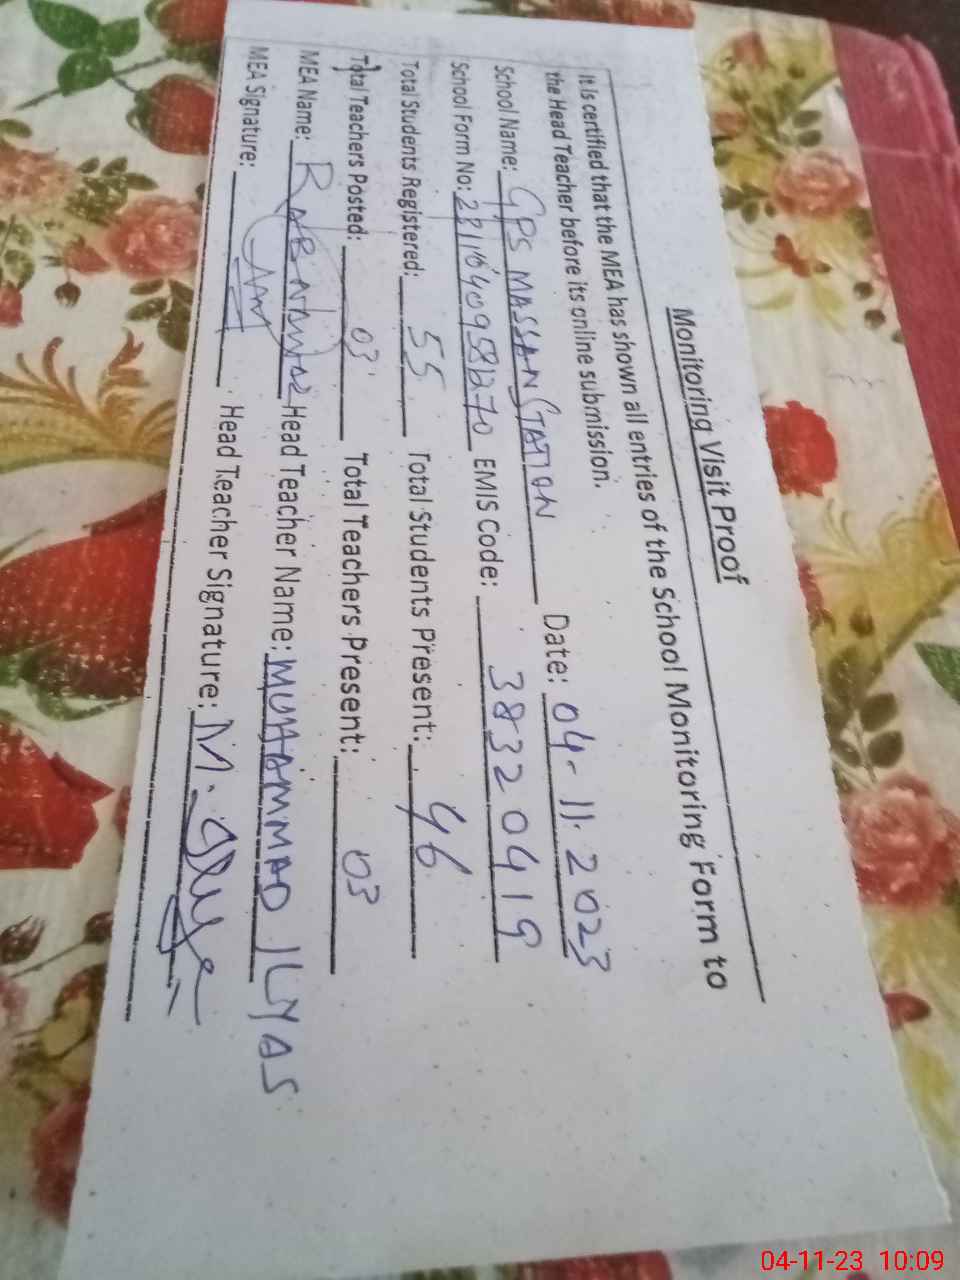 Monitoring Visit Proof
It is certified that the MEA has shown all entries of the School Monitoring Form to
the Head Teacher before its online submission.
School Name: GPS MASSAN STATION Date: 04-11-2023
School Form No: EMIS Code: 38320419
Total Students Registered: 55 Total Students Present: 46
Total Teachers Posted: 03 Total Teachers Present: 03
MEA Name: Head Teacher Name: MUHAMMAD ILYAS
MEA Signature: Head Teacher Signature: M.
04-11-23 10:09